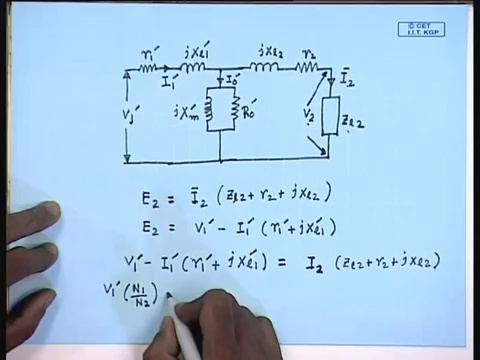 © CET
I.I.T. KGP
r₁' jxℓ₁' jxℓ₂ r₂
I₁' I₀' Ī₂
V₁' jXₘ' R₀' V₂ Zℓ₂
E₂ = Ī₂ (Zℓ₂ + r₂ + jxℓ₂)
E₂ = V₁' - I₁' (r₁' + jxℓ₁')
V₁' - I₁' (r₁' + jxℓ₁') = I₂ (Zℓ₂ + r₂ + jxℓ₂)
V₁' (N₁/N₂)